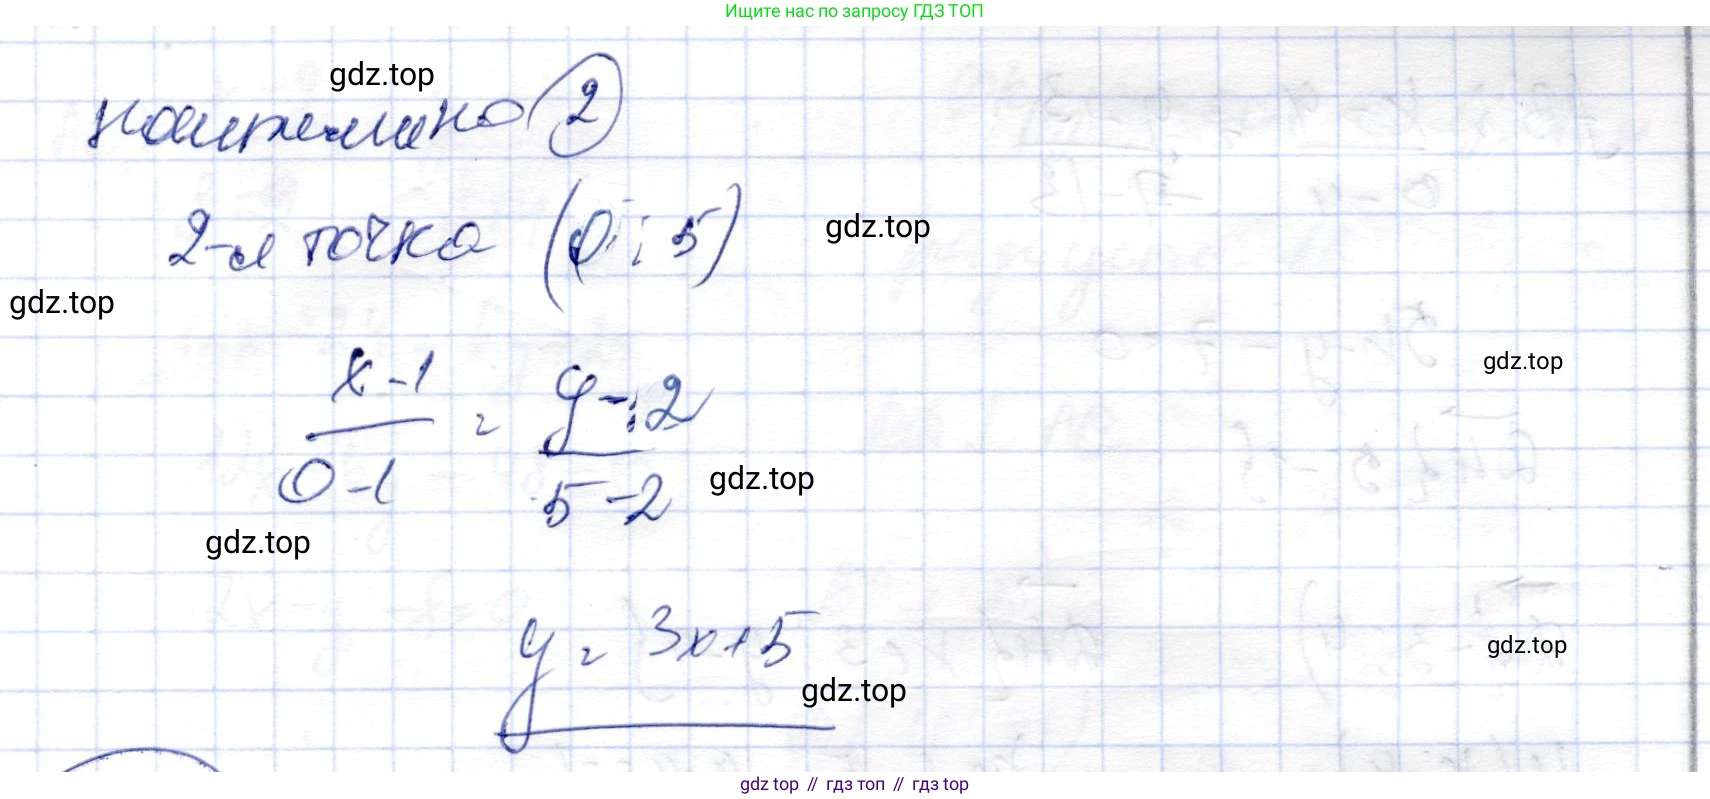 Ищите нас по запросу ГДЗ ТОП
gdz.top
2
2-я точка (0; 5)
gdz.top
gdz.top
x-1 = y-2
gdz.top
0-1 5-2
gdz.top
gdz.top
y = 3x+5
gdz.top
gdz.top
gdz top // гдз топ // гдз top